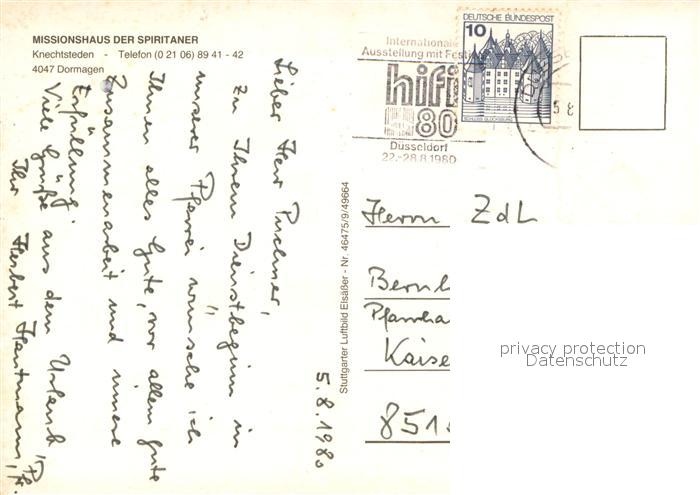 MISSIONSHAUS DER SPIRITANER
Knechtsteden - Telefon (0 21 06) 89 41 - 42
4047 Dormagen
Lieber Herr Puchner,
zu Ihrem Dienstbeginn in
unserer Pfarrei wünsche ich
Ihnen alles Gute, vor allem gute
Zusammenarbeit und innere
Erfüllung.
Viele Grüße aus dem Urlaub
Ihr Herbert Hautmann, Pfr.
5.8.1980
Stuttgarter Luftbild Elsäßer - Nr. 46475/9/49664
Internationale
Ausstellung mit Fest
hifi
80
Düsseldorf
22.-28.8.1980
DEUTSCHE BUNDESPOST
10
SCHLOSS GLÜCKSBURG
Herrn ZdL
Bernh
Pfarrha
Kaise
851
privacy protection
Datenschutz